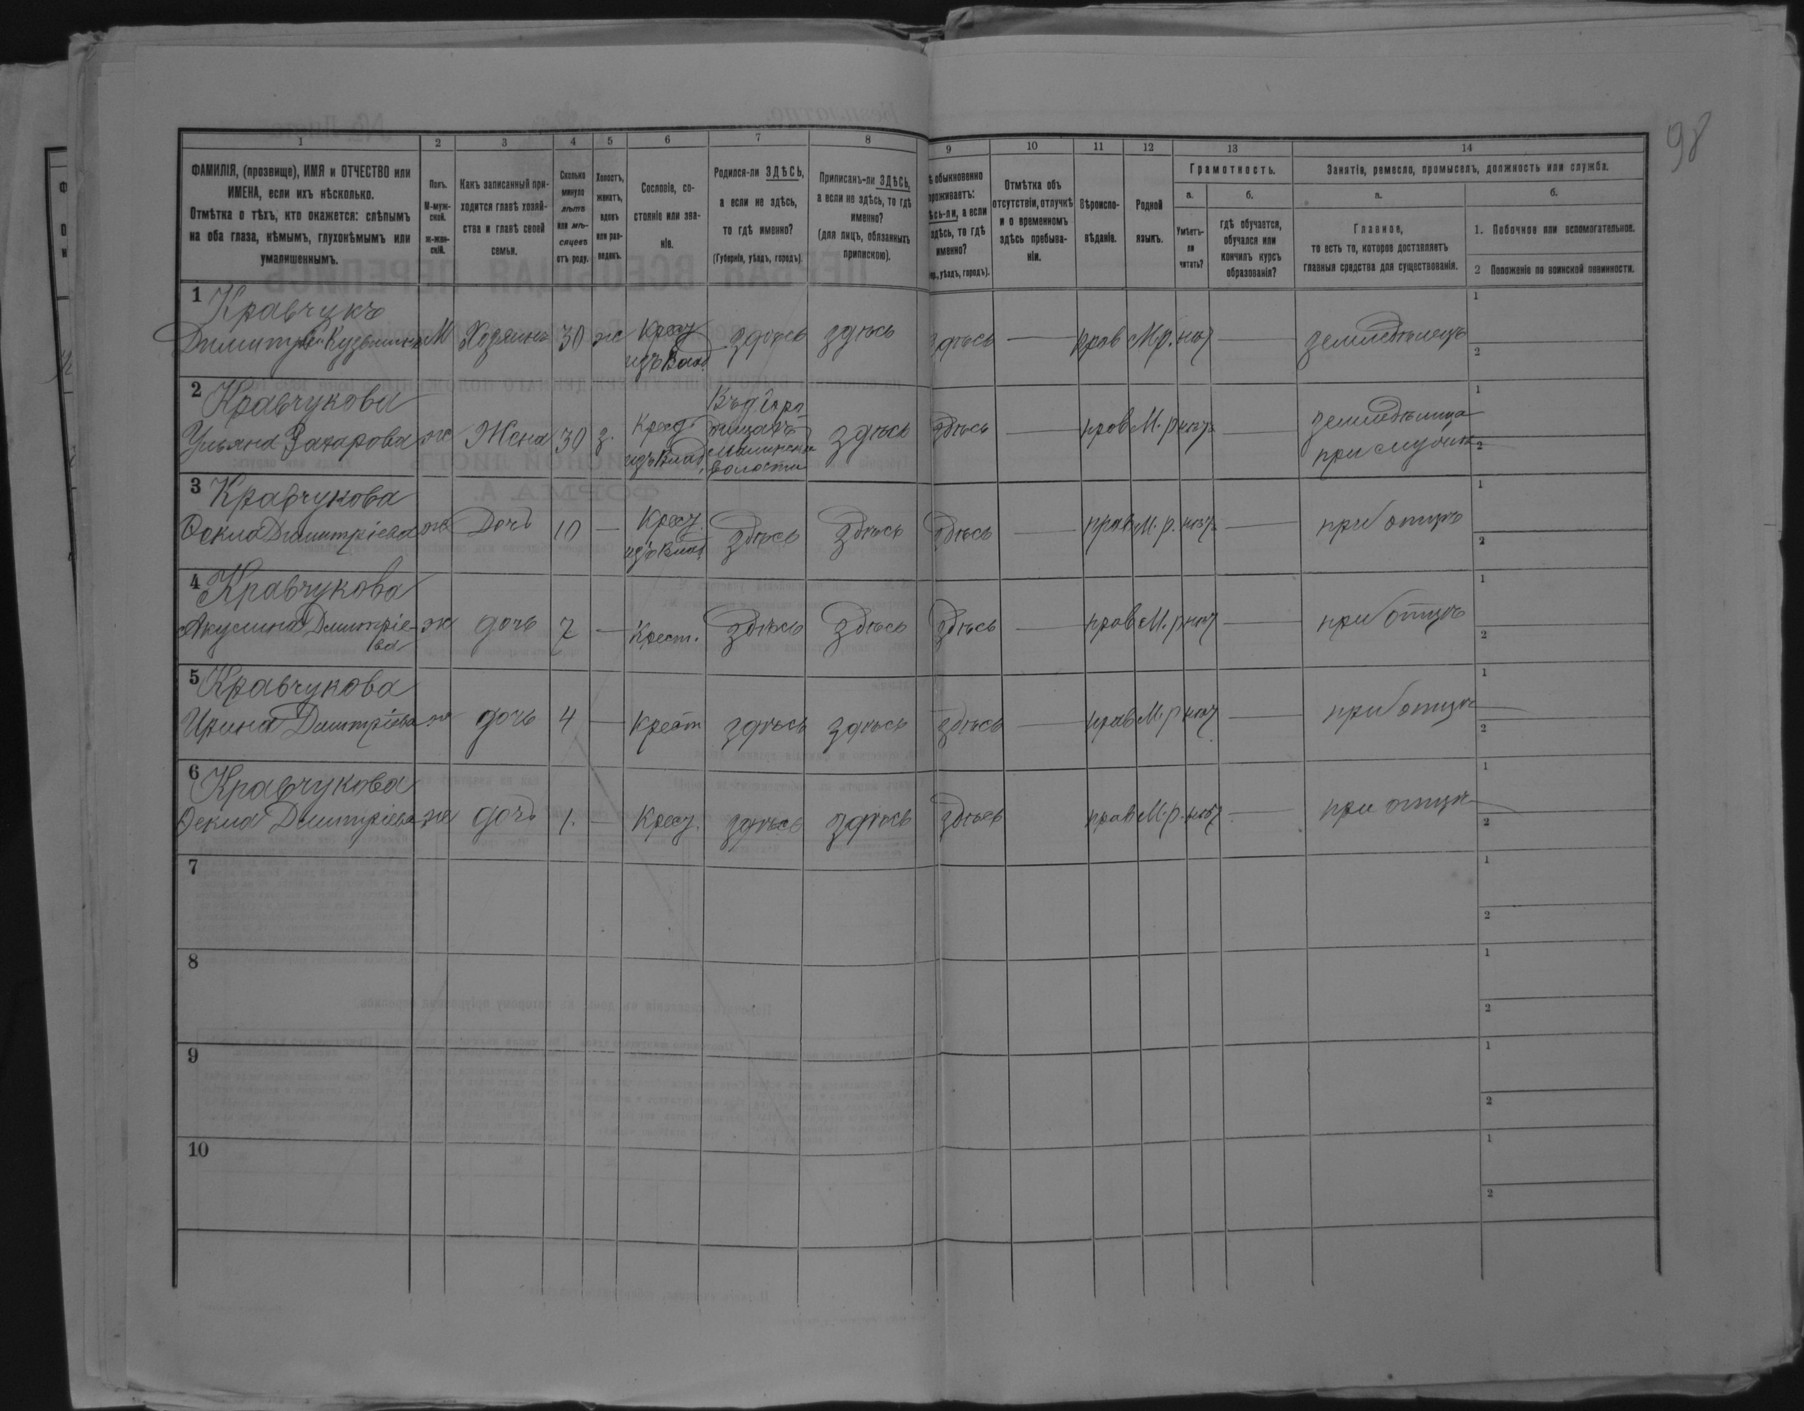 98
1 2 3 4 5 6 7 8 9 10 11 12 13 14
ФАМИЛІЯ, (прозвище), ИМЯ и ОТЧЕСТВО или
ИМЕНА, если ихъ нѣсколько.
Отмѣтка о тѣхъ, кто окажется: слѣпымъ
на оба глаза, нѣмымъ, глухонѣмымъ или
умалишеннымъ.
Полъ.
М-муж-
ской.
ж-жен-
скій.
Какъ записанный при-
ходится главѣ хозяй-
ства и главѣ своей
семьи.
Сколько
минуло
лѣтъ
или мѣ-
сяцевъ
отъ роду.
Холостъ,
женатъ,
вдовъ
или раз-
веденъ.
Сословіе, со-
стояніе или зва-
ніе.
Родился-ли ЗДѢСЬ,
а если не здѣсь,
то гдѣ именно?
(Губернія, уѣздъ, городъ).
Приписанъ-ли ЗДѢСЬ,
а если не здѣсь, то гдѣ
именно?
(для лицъ, обязанныхъ
припискою).
обыкновенно
проживаетъ:
а если
здѣсь, то гдѣ
именно?
уѣздъ, городъ).
Отмѣтка объ
отсутствіи, отлучкѣ
и о временномъ
здѣсь пребыва-
ніи.
Вѣроиспо-
вѣданіе.
Родной
языкъ.
Грамотность.
а.
Умѣетъ-
ли
читать?
б.
гдѣ обучается,
обучался или
кончилъ курсъ
образованія?
Занятіе, ремесло, промыселъ, должность или служба.
а.
Главное,
то есть то, которое доставляетъ
главныя средства для существованія.
б.
1. Побочное или вспомогательное.
2 Положеніе по воинской повинности.
1 Кравчукъ
Димитрій Кузьминъ М Хозяинъ 30 ж Крест здѣсь здѣсь здѣсь — прав М.р. нѣт — земледѣлецъ
1
2
2 Кравчукова
Ульяна Захарова ж Жена 30 з. Крест здѣсь здѣсь — прав М.р нѣт — земледѣлица
волости
при мужѣ
1
2
3 Кравчукова
Ѳекла Димитріева ж Дочь 10 — Крест. здѣсь здѣсь здѣсь — прав М.р. нѣт — при отцѣ
1
2
4 Кравчукова
Акулина Димитріе-
ва ж дочь 7 — Крест. здѣсь здѣсь здѣсь — прав М.р нѣт — при отцѣ
1
2
5 Кравчукова
Ирина Димитріева ж дочь 4 — Крест здѣсь здѣсь здѣсь — прав М.р нѣт — при отцѣ
1
2
6 Кравчукова
Ѳекла Димитріева ж дочь 1. — Крест. здѣсь здѣсь здѣсь прав М.р. нѣт — при отцѣ
1
2
7
1
2
8
1
2
9
1
2
10
1
2